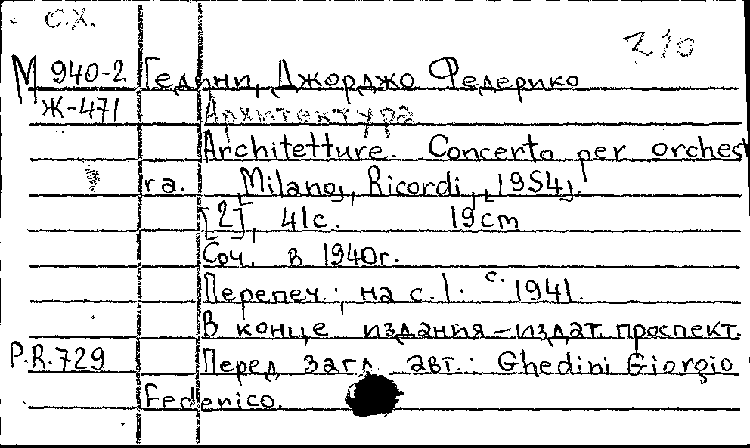 С.Х.
210
М 940-2 Гедини, Джорджо Федерико
Ж-471
Архитектура
Architetture. Concerto per orchest
ra. Milano, Ricordi, [1954].
[2], 41с. 19cm
Соч. в 1940г.
Перепеч.; на с.1. с. 1941.
В конце издания – издат. проспект.
P.R.729 Перед загл. авт.: Ghedini Giorgio
Federico.